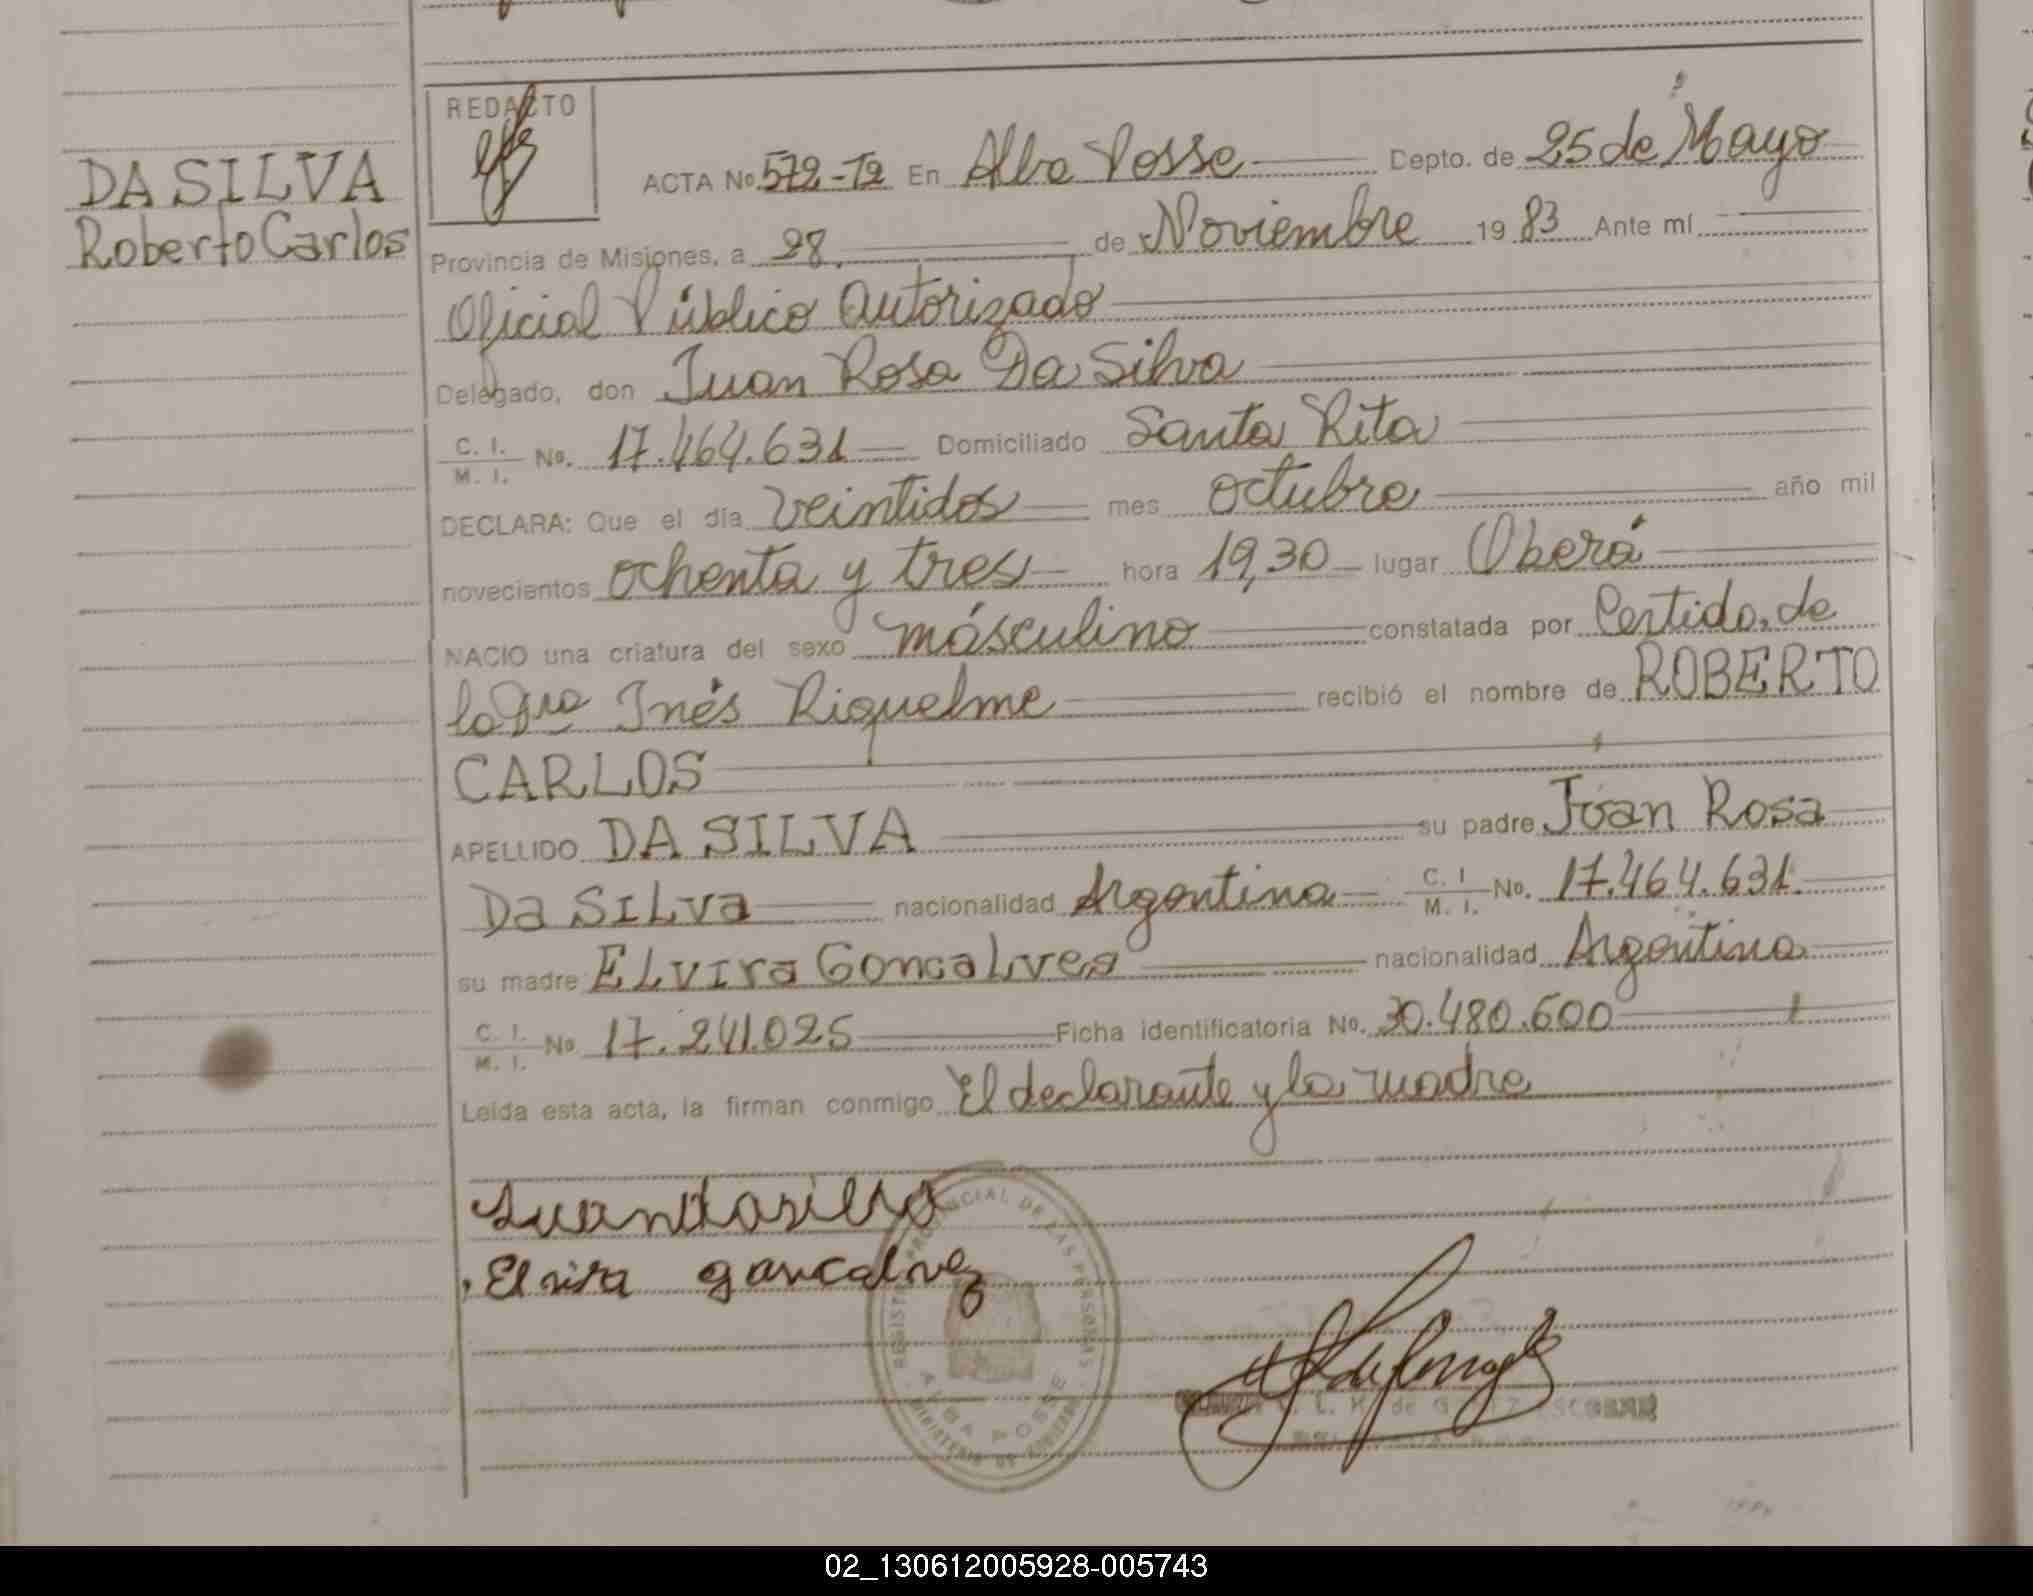 DA SILVA
Roberto Carlos
REDACTO
ACTA No. 572-T2 En Alba Posse Depto. de 25 de Mayo
Provincia de Misiones, a 28 de Noviembre 1983 Ante mí
Oficial Público Autorizado
Delegado, don Juan Rosa Da Silva
C. I. / M. I. No. 17.464.631 Domiciliado Santa Rita
DECLARA: Que el día veintidos mes octubre año mil
novecientos ochenta y tres hora 19,30 lugar Oberá
NACIO una criatura del sexo másculino constatada por Certido. de
la Dra Inés Riquelme recibió el nombre de ROBERTO
CARLOS
APELLIDO DA SILVA su padre Juan Rosa
Da SILva nacionalidad Argentina C. I / M. I. No. 17.464.631.
su madre ELvira GoncaLves nacionalidad Argentina
C. I. / M. I. No 17.241.025 Ficha identificatoria No. 30.480.600
Leída esta acta, la firman conmigo El declarante y la madre
Juan dasilva
Elvira goncalvez
REGISTRO PROVINCIAL DE LAS PERSONAS
ALBA POSSE
ESCOBAR
02_130612005928-005743